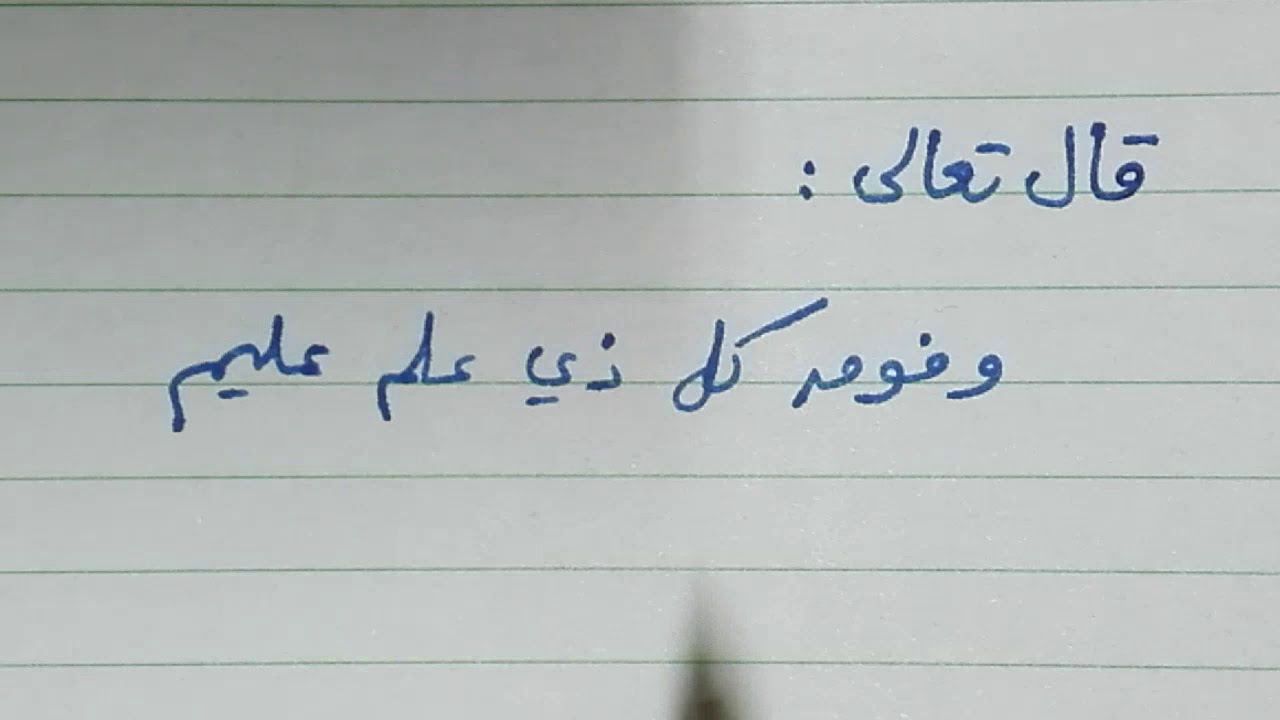 قال تعالى :
وفوق كل ذي علم عليم